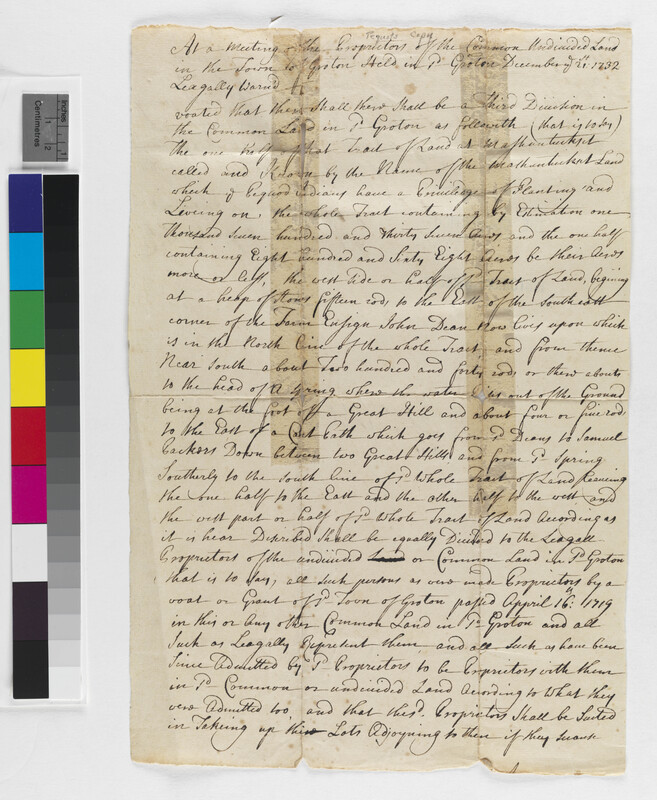 Pequots Copy
At a Meeting of the Proprietors of the Common Undivided Land
in the Town of Groton Held in sd Groton December ye 21st 1732
Leagally Warnd
voated that there Shall there Shall be a Third Division in
the Common Land in sd Groton as followeth (that is to say)
the one half of that Tract of Land at Mashentuckset
called and Known by the Name of the Mashentucket Land
which ye Pequod Indians have a Priviledge of Planting and
Liveing on, the whole Tract containing by Estimation one
thousand Seven hundred and thirty Seven Acres and the one half
containing Eight hundred and Sixty Eight Acres be their Acres
more or less, the west side or half of sd Tract of Land, begining
at a heap of Stones fifteen rods to the East of the Southeast
corner of the Farm Ensign John Dean now lives upon which
is in the North Line of the whole Tract and from thence
Near South about Two hundred and forty rods or there abouts
to the head of a Spring where the water Rises out of the Ground
being at the foot of a Great Hill and about four or five rod
to the East of a Cart Path which goes from sd Deans to Samuel
Packers Down between two Great Hills and from sd Spring
Southerly to the South Line of sd whole Tract of Land Leaving
the one half to the East and the other half to the west and
the west part or half of sd whole Tract of Land According as
it is hear Discribed Shall be equally Divided to the Leagall
Proprietors of the undivided Land or Common Land in sd Groton
that is to say, all Such persons as were made Proprietors by a
voat or Grant of sd Town of Groton passed April 16th: 1719
in this or Any other Common Land in sd Groton and all
Such as Leagally Represent them and all Such as have been
Since Admitted by sd Proprietors to be Proprietors with them
in sd Common or undivided Land According to what they
were Admitted too and that the sd. Proprietors Shall be Suited
in Takeing up their Lots Adjoyning to them if they
Inches
Centimetres
1
2
1